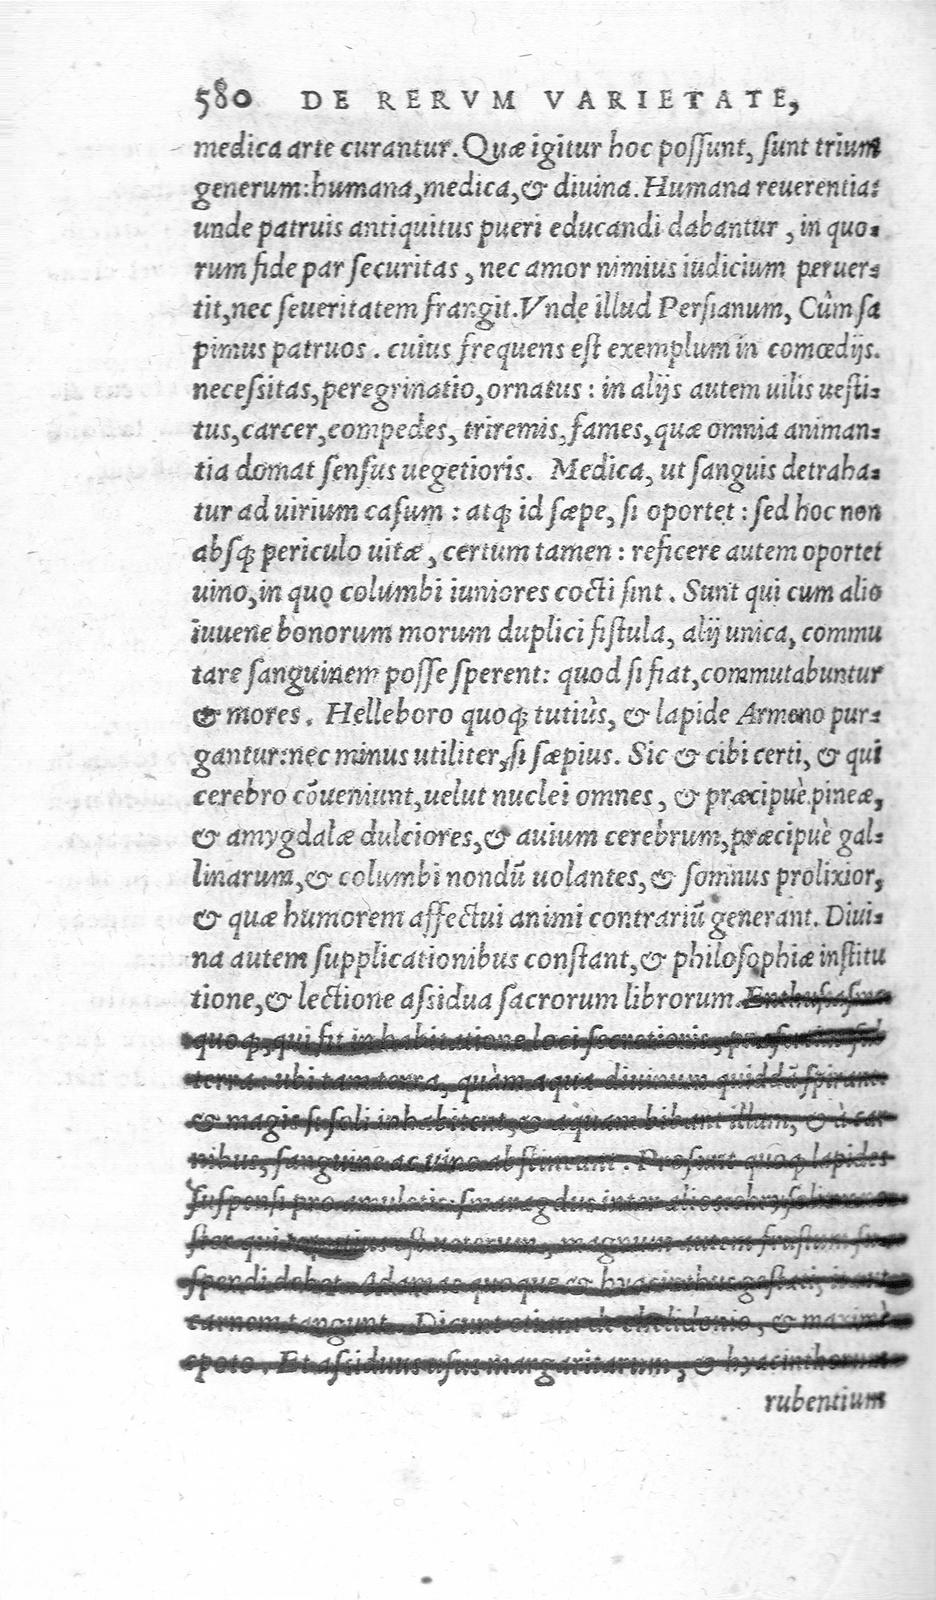 580 DE RERVM VARIETATE,
medica arte curantur. Quæ igitur hoc poſſunt, ſunt trium
generum: humana, medica, & diuina. Humana reuerentia:
unde patruis antiquitus pueri educandi dabantur, in quo-
rum fide par ſecuritas, nec amor nimius iudicium peruer-
tit, nec ſeueritatem frangit. Vnde illud Perſianum, Cûm ſa
pimus patruos. cuius frequens eſt exemplum in comœdijs.
neceſsitas, peregrinatio, ornatus: in alijs autem uilis ueſti-
tus, carcer, compedes, triremis, fames, quæ omnia animan-
tia domat ſenſus uegetioris. Medica, ut ſanguis detraha-
tur ad uirium caſum: atq; id ſæpe, ſi oportet: ſed hoc non
abſq; periculo uitæ, certum tamen: reficere autem oportet
uino, in quo columbi iuniores cocti ſint. Sunt qui cum alio
iuuene bonorum morum duplici fiſtula, alij unica, commu
tare ſanguinem poſſe ſperent: quod ſi fiat, commutabuntur
& mores. Helleboro quoq; tutiùs, & lapide Armeno pur-
gantur: nec minus utiliter, ſi ſæpius. Sic & cibi certi, & qui
cerebro cōueniunt, uelut nuclei omnes, & præcipuè pineæ,
& amygdalæ dulciores, & auium cerebrum, præcipuè gal-
linarum, & columbi nondū uolantes, & ſomnus prolixior,
& quæ humorem affectui animi contrariū generant. Diui-
na autem ſupplicationibus conſtant, & philoſophiæ inſtitu
tione, & lectione aſsidua ſacrorum librorum. Enthuſiaſmo
quoq;, qui fit inhabitatione loci ſecretioris, præſertim ſub
terra: ubi tam terra, quàm aqua diuinum quiddā ſpirant:
& magis ſi ſoli inhabitent, & aquam bibant illam, & à car
nibus, ſanguine ac uino abſtineant. Proſunt quoq; lapides
ſuſpenſi pro amuletis: ſmaragdus inter alios:
eſt ueterum, magnum autem fruſtum ſu
ſpendi debet. Adamas quoque & hyacinthus geſtati,
carnem tangunt. Dicunt etiam de chelidonio, & maximè
epoto. Et aſsiduus uſus margaritarum, & hyacinthorum
rubentium